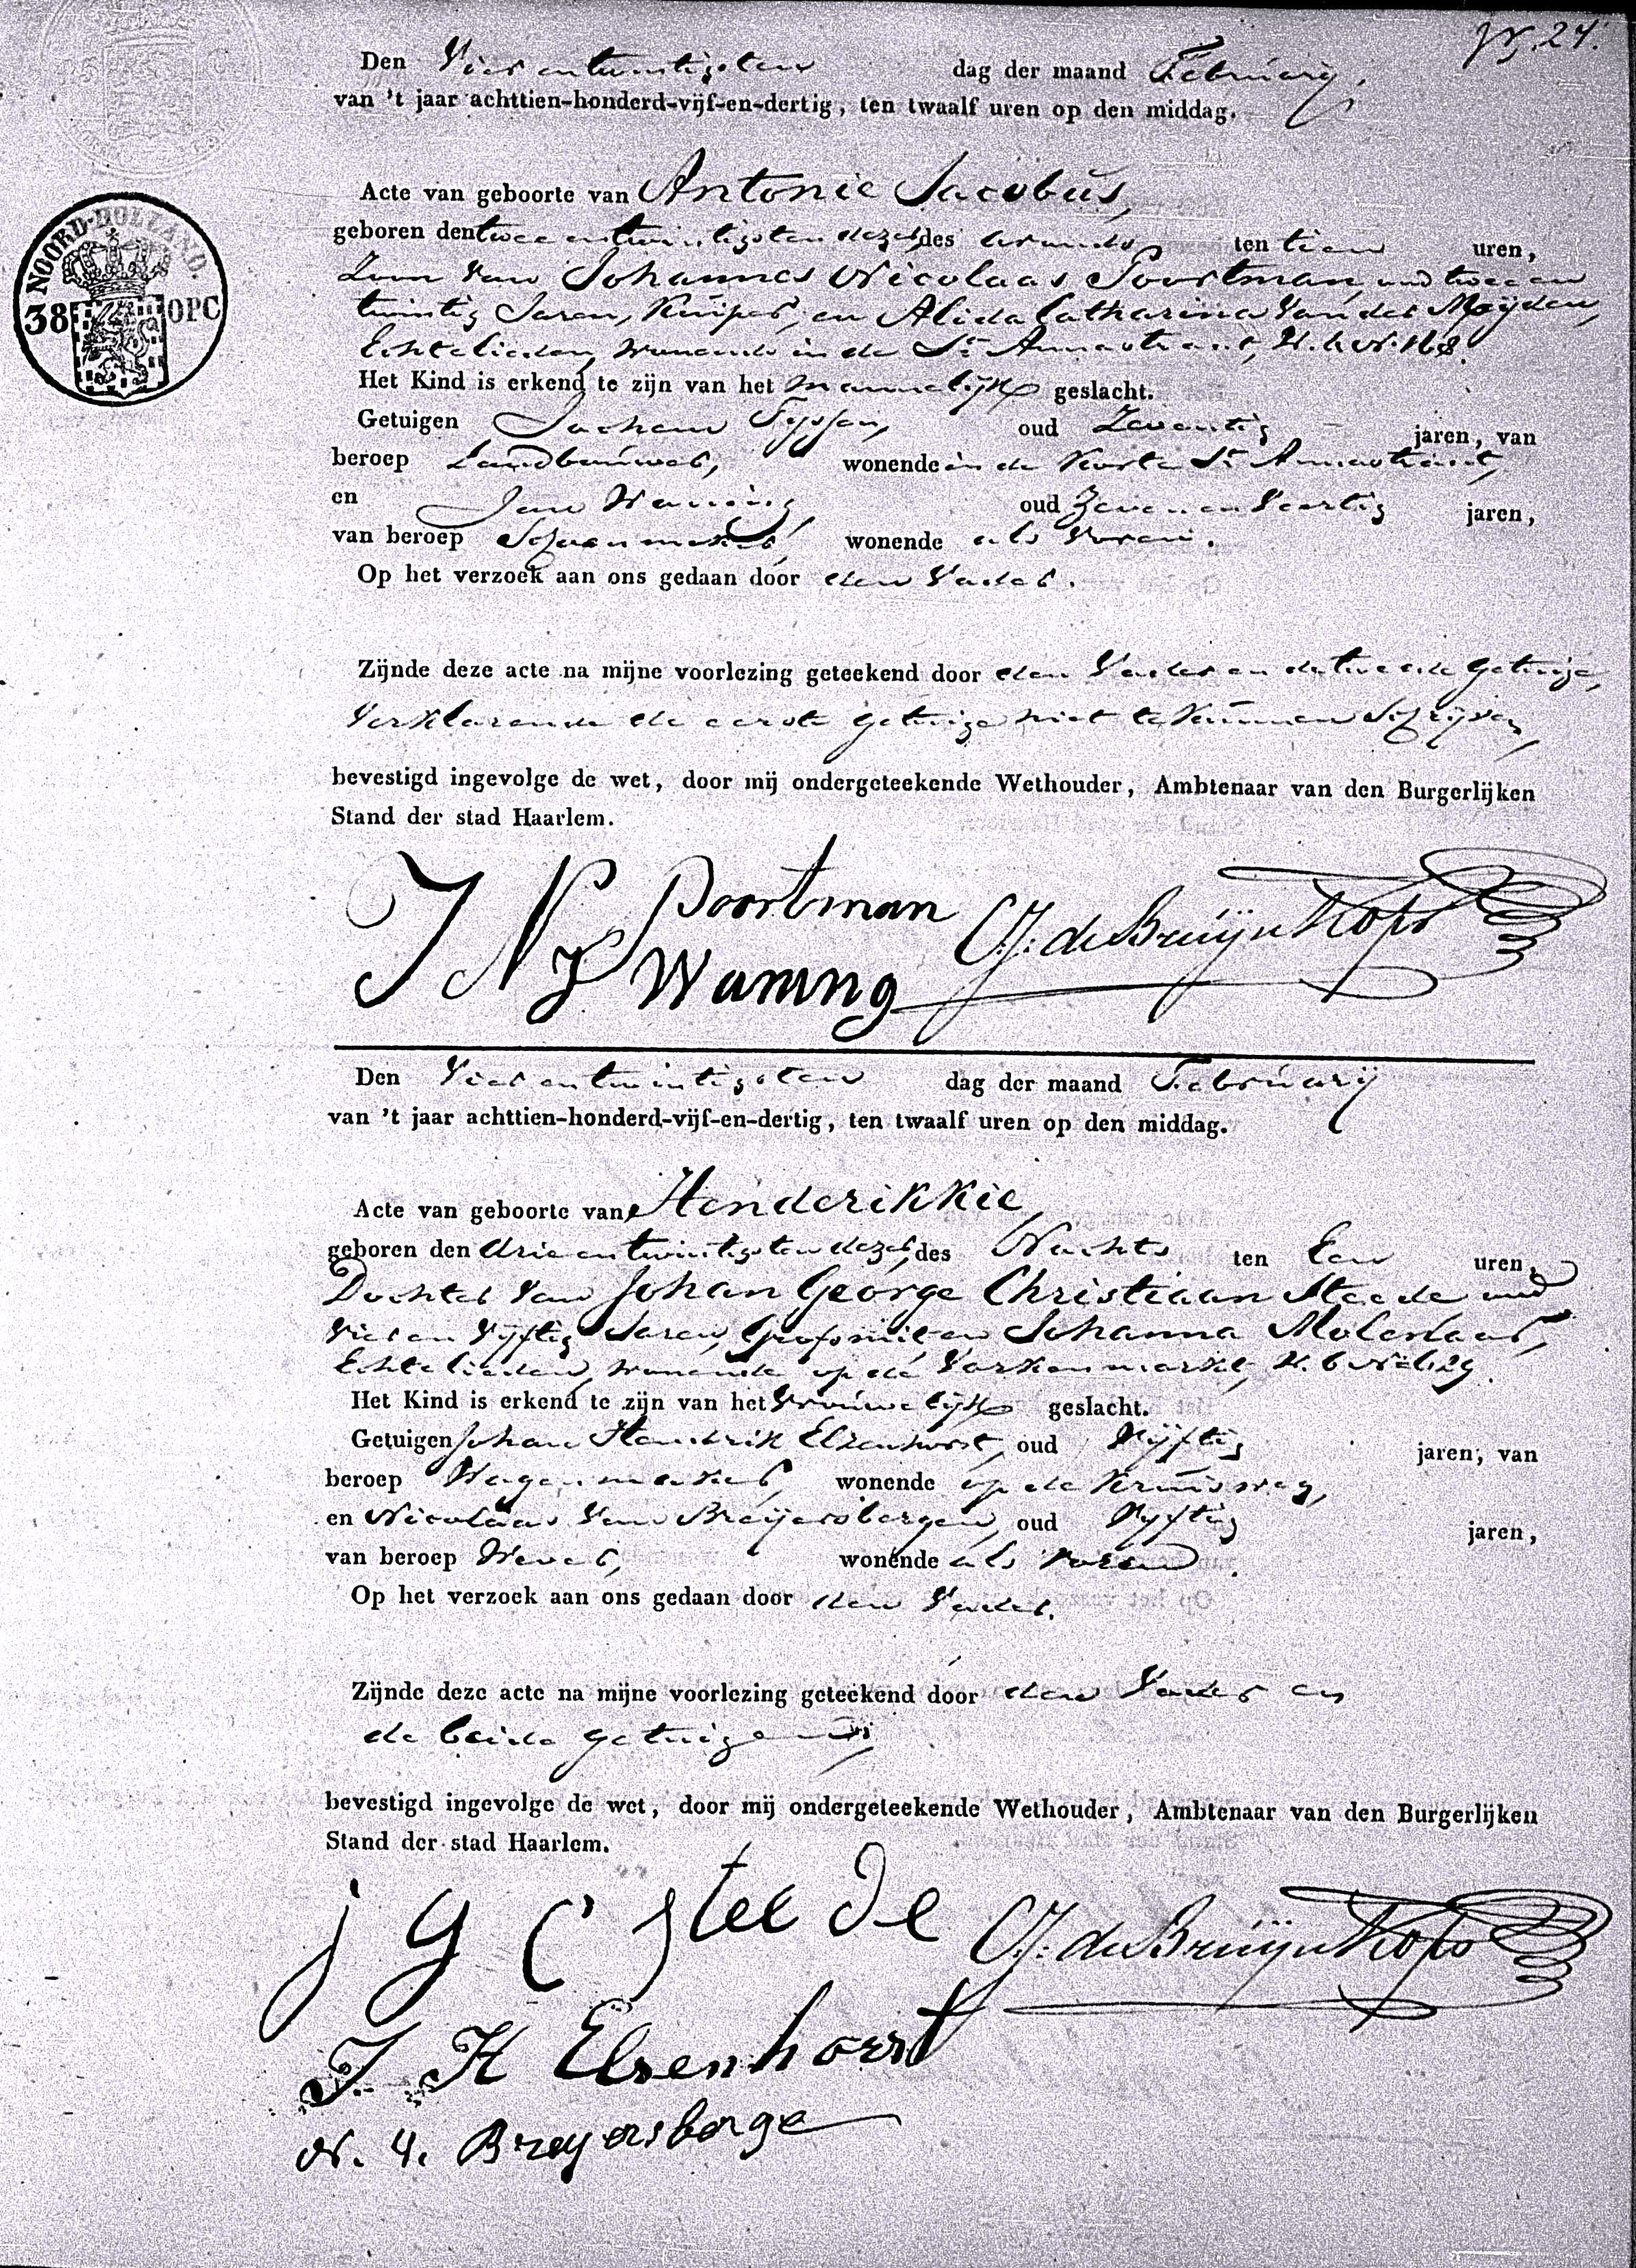 24.
Den Vier en twintigsten dag der maand February,
van 't jaar achttien-honderd-vijf-en-dertig, ten twaalf uren op den middag.
NOORD-HOLLAND.
38 OPC
Acte van geboorte van Antonie Jacobus,
geboren den twee en twintigsten dezer, des avonds ten tien uren,
Zoon van Johannes Nicolaas Poortman, oud twee en
twintig Jaren, Kuiper, en Alida Catharina van der Meijden,
Echtelieden, wonende in de St. Annastraat,
Het Kind is erkend te zijn van het mannelijk geslacht.
Getuigen Jochem Tijssen, oud Zeventig jaren, van
beroep Landbouwer, wonende in de Korte St. Annastraat,
en Jan Waning oud Zeven en Veertig jaren,
van beroep Schoenmaker, wonende als voren.
Op het verzoek aan ons gedaan door den Vader.
Zijnde deze acte na mijne voorlezing geteekend door den Vader en de tweede getuige,
verklarende de eerste getuige niet te kunnen Schrijven,
bevestigd ingevolge de wet, door mij ondergeteekende Wethouder, Ambtenaar van den Burgerlijken
Stand der stad Haarlem.
J N Poortman
J Waning
C.J. de Bruijn Kops
Den Vier en twintigsten dag der maand February
van 't jaar achttien-honderd-vijf-en-dertig, ten twaalf uren op den middag.
Acte van geboorte van Henderikkie,
geboren den drie en twintigsten dezer, des Nachts ten Een uren,
Dochter van Johan George Christiaan Steede oud
Vier en Vijftig Jaren, Grofsmit en Johanna Molenaar,
Echtelieden, wonende op de Varkenmarkt,
Het Kind is erkend te zijn van het vrouwelijk geslacht.
Getuigen Johan Hendrik Elsenhorst, oud Vijftig jaren, van
beroep Wagenmaker, wonende op de Kruisweg,
en Nicolaas van Breijersbergen, oud Vijftig jaren,
van beroep Wever, wonende als voren.
Op het verzoek aan ons gedaan door den Vader.
Zijnde deze acte na mijne voorlezing geteekend door den Vader en
de beide getuigen,
bevestigd ingevolge de wet, door mij ondergeteekende Wethouder, Ambtenaar van den Burgerlijken
Stand der stad Haarlem.
j g C steede
C.J. de Bruijn Kops
J. H Elsenhorst
N. v. Breyersberge